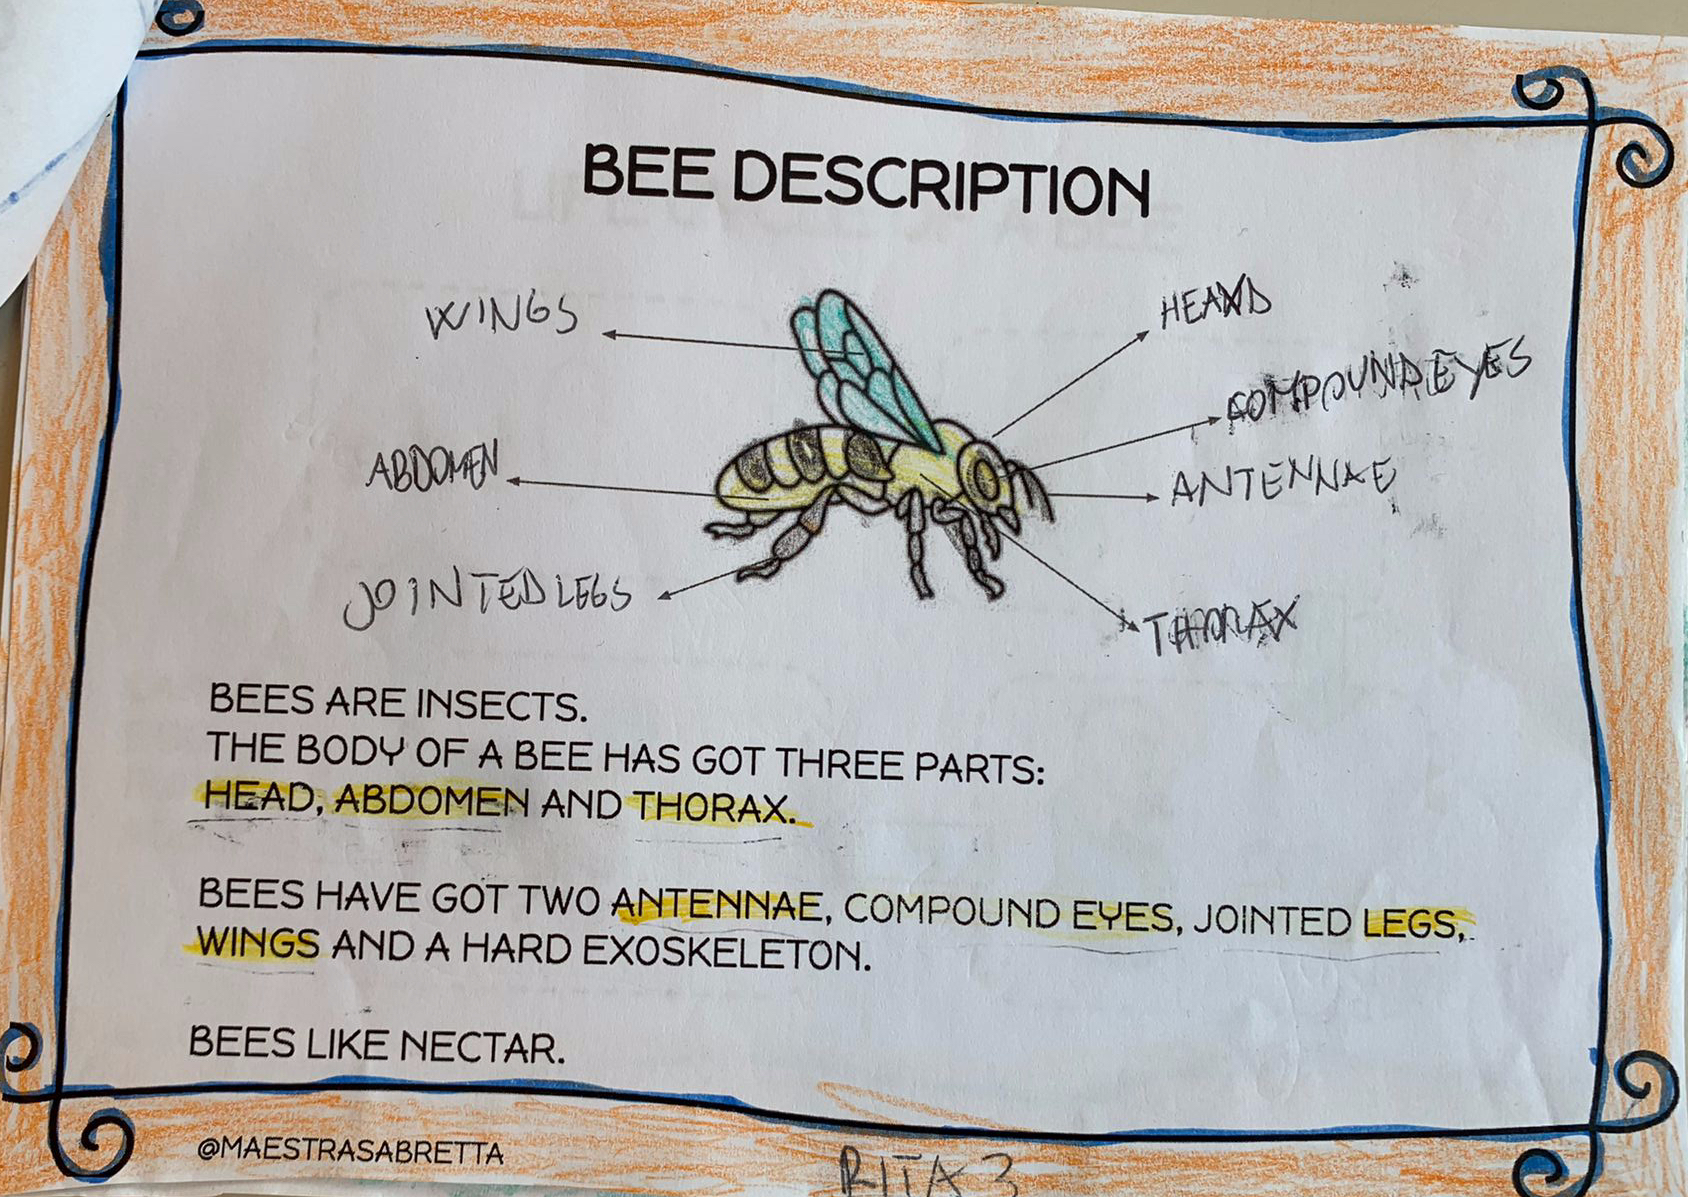 BEE DESCRIPTION
WINGS
HEAD
COMPOUND EYES
ABDOMEN
ANTENNAE
JOINTED LEGS
THORAX
BEES ARE INSECTS.
THE BODY OF A BEE HAS GOT THREE PARTS:
HEAD, ABDOMEN AND THORAX.
BEES HAVE GOT TWO ANTENNAE, COMPOUND EYES, JOINTED LEGS,
WINGS AND A HARD EXOSKELETON.
BEES LIKE NECTAR.
@MAESTRASABRETTA
RITA 3